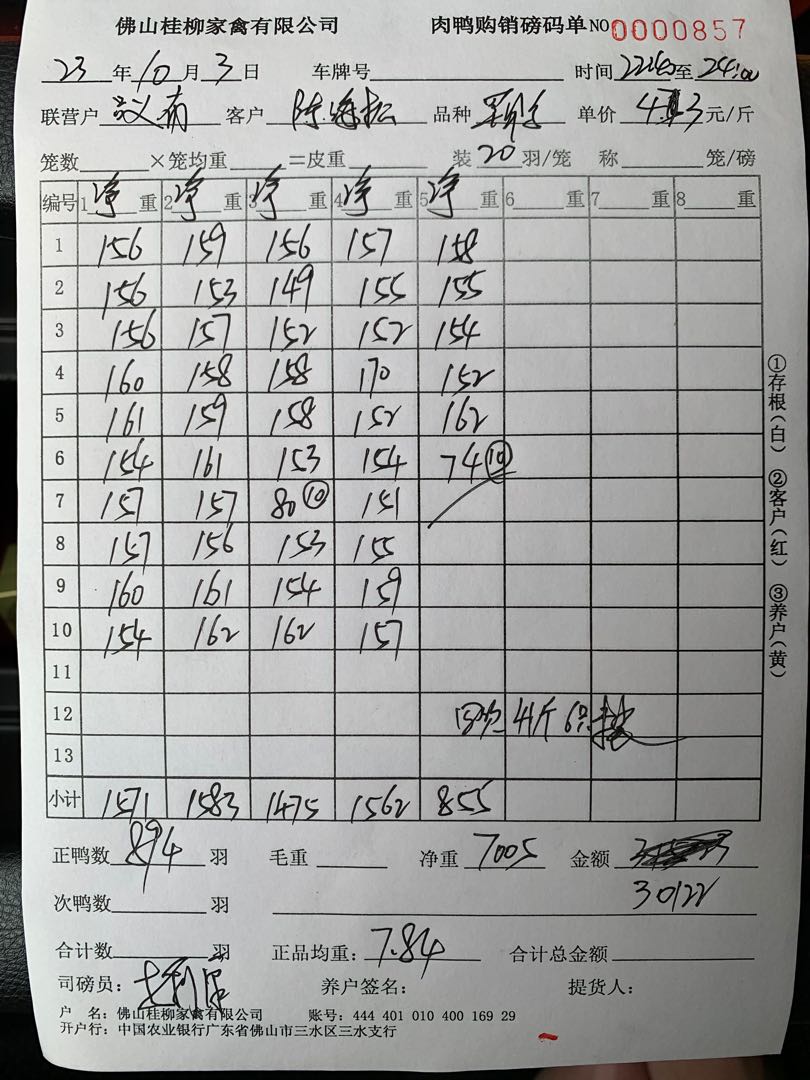 佛山桂柳家禽有限公司 肉鸭购销磅码单 NO 0000857
23 年 10 月 3 日 车牌号 时间 22:40 至 24:00
联营户 客户 陈海松 品种 单价 4.3 元/斤
笼数 ×笼均重 =皮重 装 20 羽/笼 称 笼/磅
编号 1 净 重 2 净 重 3 净 重 4 净 重 5 净 重 6 重 7 重 8 重
1 156 159 156 157 158
2 156 153 149 155 155
3 156 157 152 152 154
4 160 158 158 170 152
5 161 159 158 152 162
6 154 161 153 154 74 ⑩
7 157 157 80 ⑩ 151
8 157 156 153 155
9 160 161 154 159
10 154 162 162 157
11
12 41斤 6只
13
小计 1571 1583 1475 1562 855
正鸭数 894 羽 毛重 净重 7005 金额
次鸭数 羽 30122
合计数 羽 正品均重: 7.84 合计总金额
司磅员: 养户签名: 提货人:
户 名: 佛山桂柳家禽有限公司 账号: 444 401 010 400 169 29
开户行: 中国农业银行广东省佛山市三水区三水支行
①存根(白) ②客户(红) ③养户(黄)